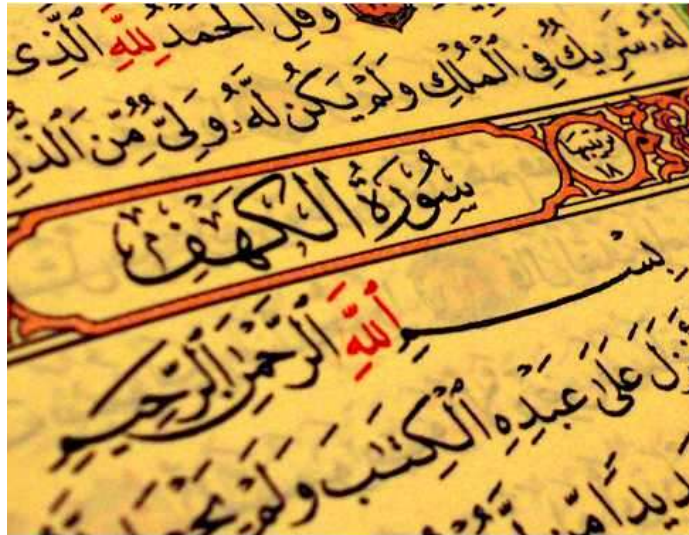 وَقُلِ ٱلْحَمْدُ لِلَّهِ ٱلَّذِى
لَّهُۥ شَرِيكٌ فِى ٱلْمُلْكِ وَلَمْ يَكُن لَّهُۥ وَلِىٌّ مِّنَ ٱلذُّلِّ
ترتيبها ١٨
سُورَةُ الكَهْفِ
بِسْمِ ٱللَّهِ ٱلرَّحْمَٰنِ ٱلرَّحِيمِ
أَنزَلَ عَلَىٰ عَبْدِهِ ٱلْكِتَٰبَ وَلَمْ يَجْعَل